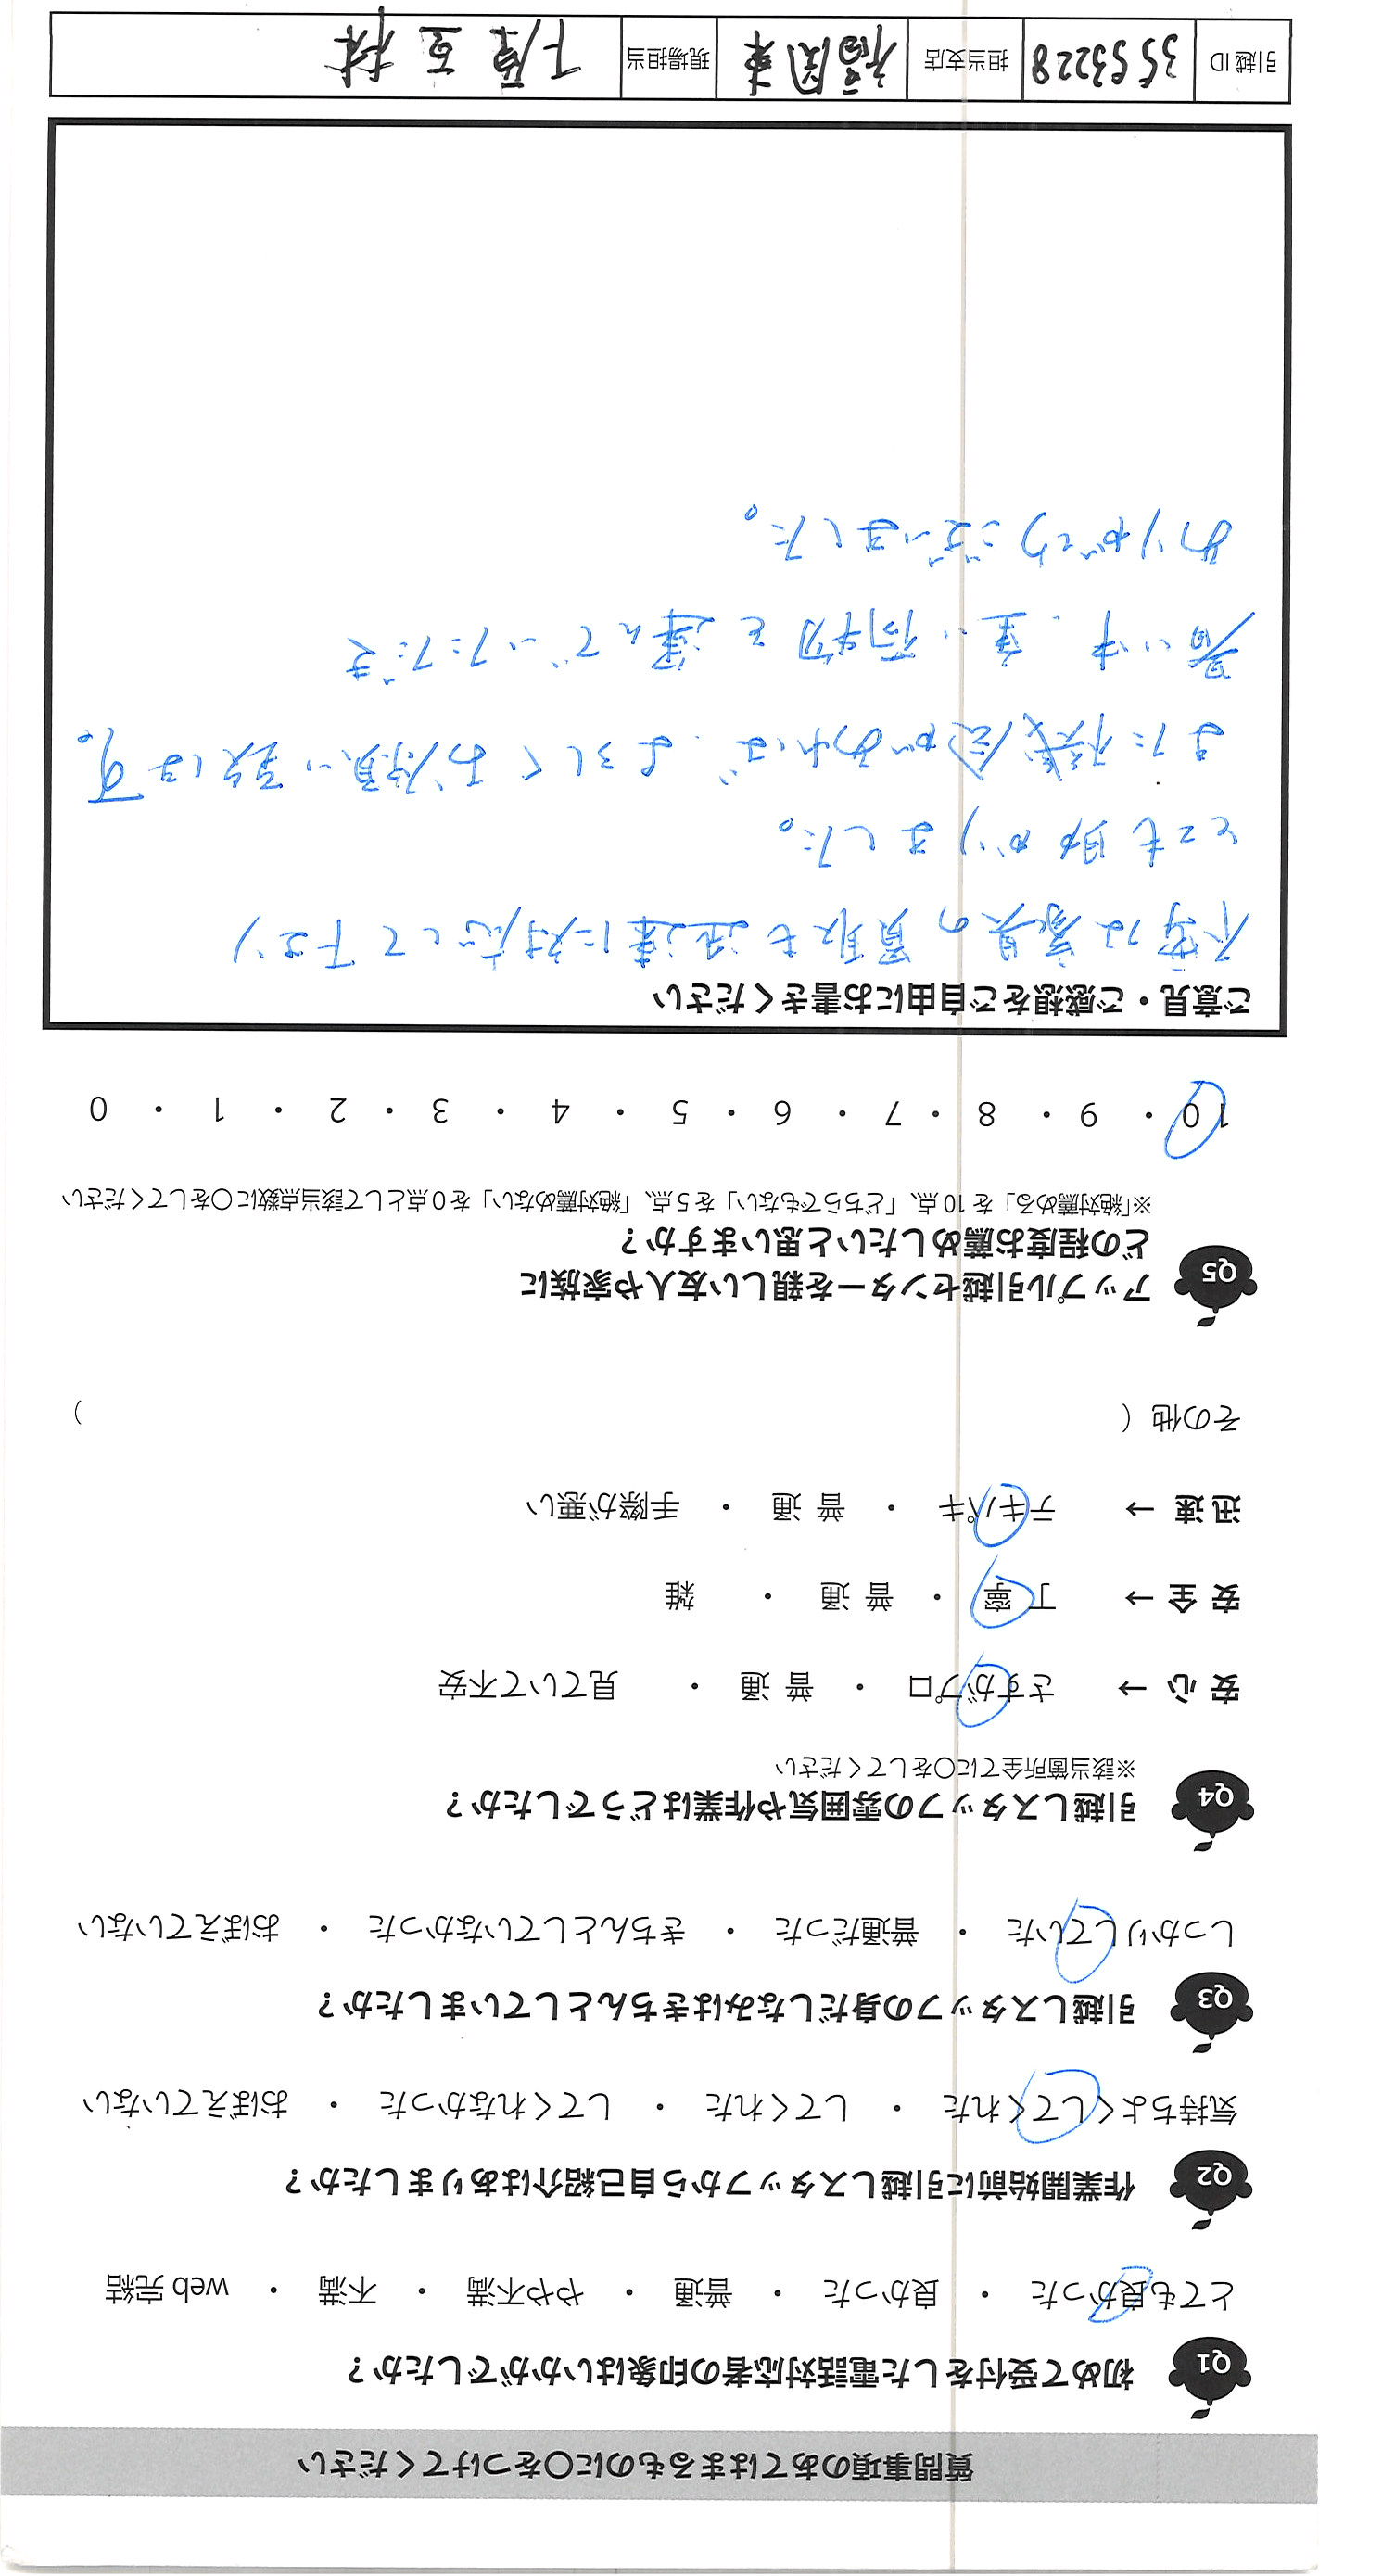 質問事項のあてはまるものに○をつけてください
Q1 初めて受付をした電話対応者の印象はいかがでしたか？
とても良かった ・ 良かった ・ 普通 ・ やや不満 ・ 不満 ・ web 完結
Q2 作業開始前に引越しスタッフから自己紹介はありましたか？
気持ちよくしてくれた ・ してくれた ・ してくれなかった ・ おぼえていない
Q3 引越しスタッフの身だしなみはきちんとしていましたか？
しっかりしていた ・ 普通だった ・ きちんとしていなかった ・ おぼえていない
Q4 引越しスタッフの雰囲気や作業はどうでしたか？
※該当箇所全てに○をしてください
安 心 → さすがプロ ・ 普 通 ・ 見ていて不安
安 全 → 丁 寧 ・ 普 通 ・ 雑
迅 速 → テキパキ ・ 普 通 ・ 手際が悪い
その他（ ）
Q5 アップル引越センターを親しい友人や家族に
どの程度お薦めしたいと思いますか？
※「絶対薦める」を 10 点、「どちらでもない」を 5 点、「絶対薦めない」を 0 点として該当点数に○をしてください
10 ・ 9 ・ 8 ・ 7 ・ 6 ・ 5 ・ 4 ・ 3 ・ 2 ・ 1 ・ 0
ご意見・ご感想をご自由にお書きください
不要な家具の買取も迅速に対応して下さり
とても助かりました。
また機会があれば、よろしくお願い致します。
暑い中、重い荷物を運んでいただき
ありがとうございました。
引越 ID 3553228 担当支店 福岡東 現場担当